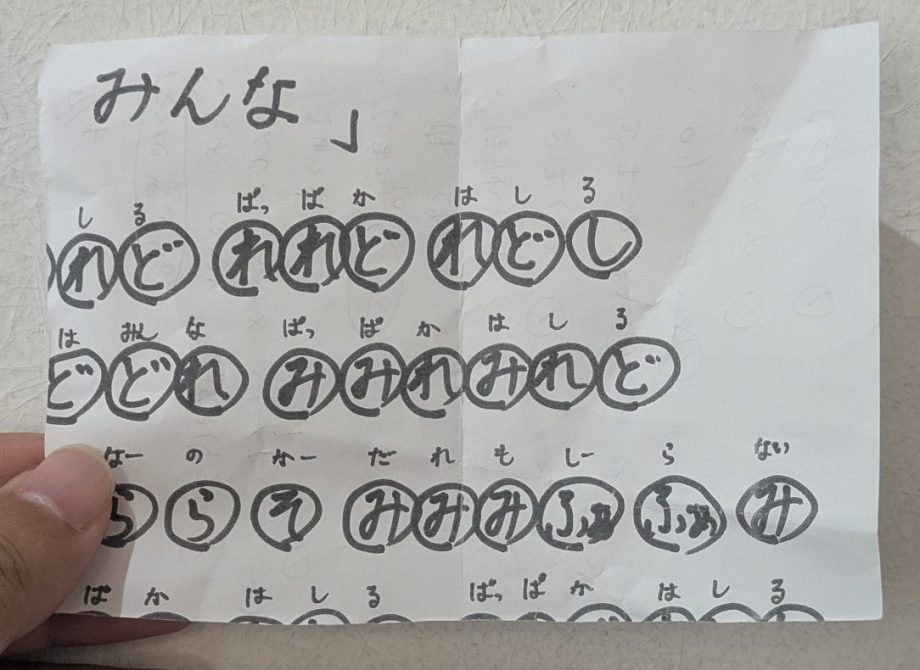 みんな」
しる ぱっぱか はしる
れど れれど れどし
は みんな ぱっぱか はしる
どどれ みみれみれど
なー の かー だ れ も しー ら ない
ららそ みみみふぁふぁみ
ぱか はしる ぱっぱか はしる